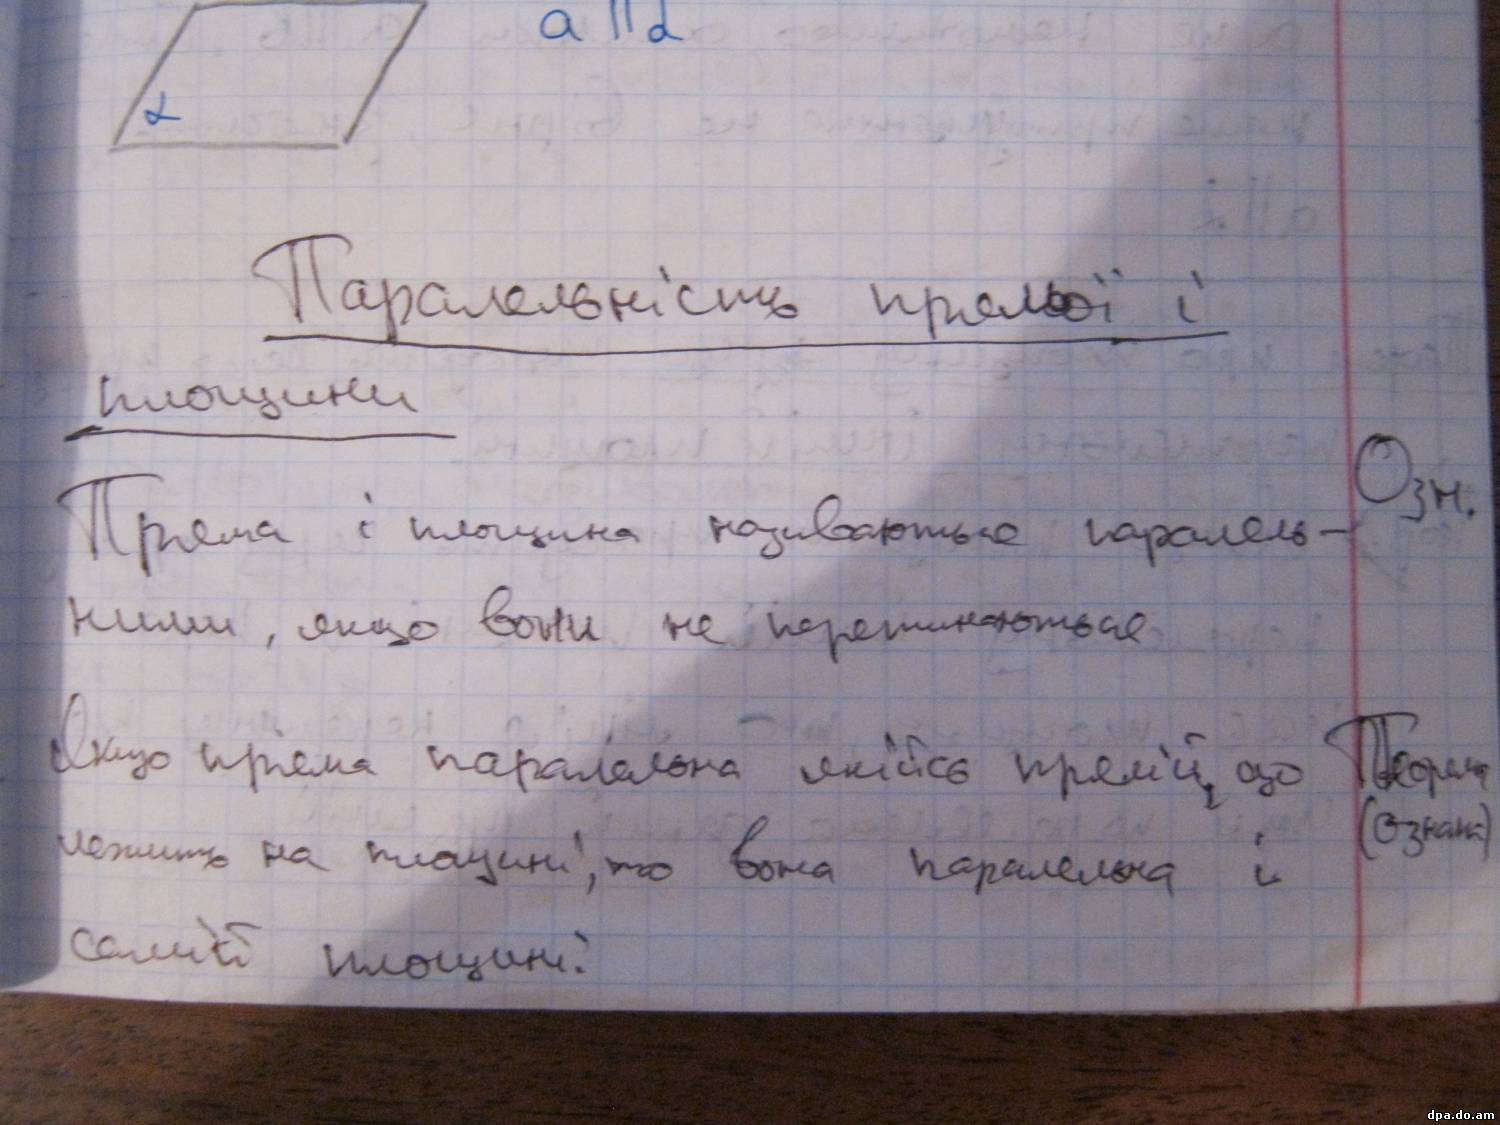 a || α
α
Паралельність прямої і
площини
Пряма і площина називаються паралель- Озн.
ними, якщо вони не перетинаються
Якщо пряма паралельна якійсь прямій, що Теорема
лежить на площині, то вона паралельна і (Ознака)
самій площині.
dpa.do.am